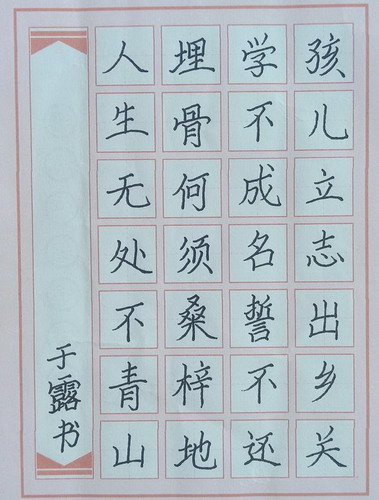 孩儿立志出乡关
学不成名誓不还
埋骨何须桑梓地
人生无处不青山
于露书